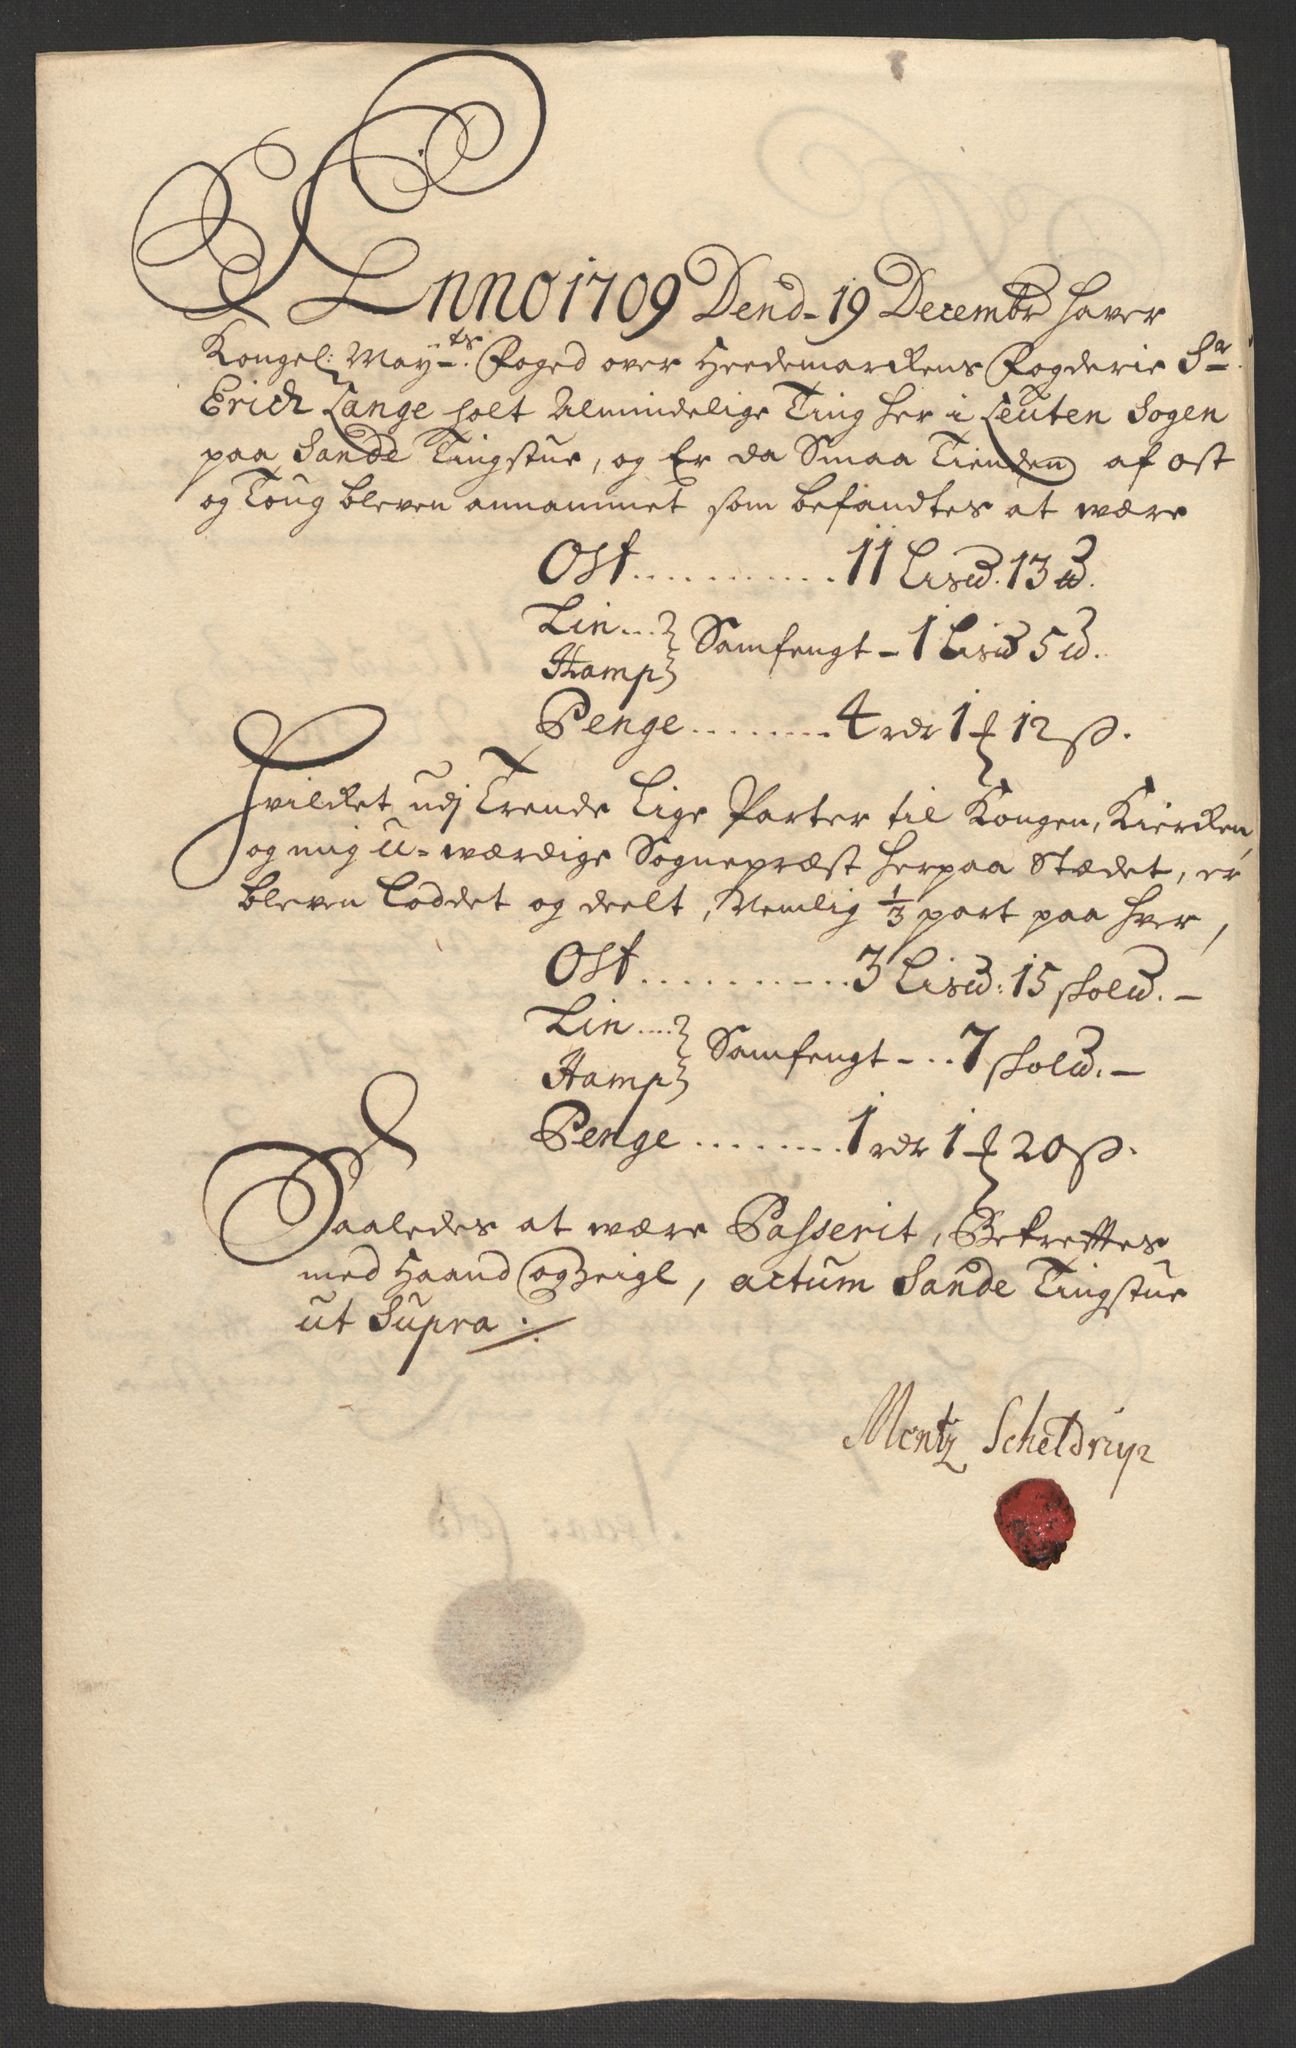 Anno 1709 Dend. 19 Decembr haver
Kongel: May.ts Foged over Heedemarckens Fogderie Sr.
Erich Lange holt Almindelige Ting her i Leuten Sogen
paa Sande Tingstue, og Er da Smaa Tienden af ost
og Toug bleven annammet som befandtes at være
Ost........... 11 Lis℔. 13 ℔.
Lin... } Samfengt - 1 Lis℔ 5 ℔.
Hamp }
Penge........ 4 rdr 1 ₰ 12 ß.
Hvilcket udj Trende Lige Parter til Kongen, Kiercken,
og mig u-værdige Sognepræst herpaa Stædet, er
bleven Loddet og deelt, Nemlig 1/3 part paa hver,
Ost........... 3 Lis℔: 15 skol℔. -
Lin.... } Samfengt - .. 7 skol℔. -
Hamp }
Penge........ 1 rdr 1 ₰ 20 ß.
Saaledes at være Passerit, Bekreftes
med Haand og Zeigl, actum Sande Tingstue
ut Supra ./.
Mentz Scheldrup